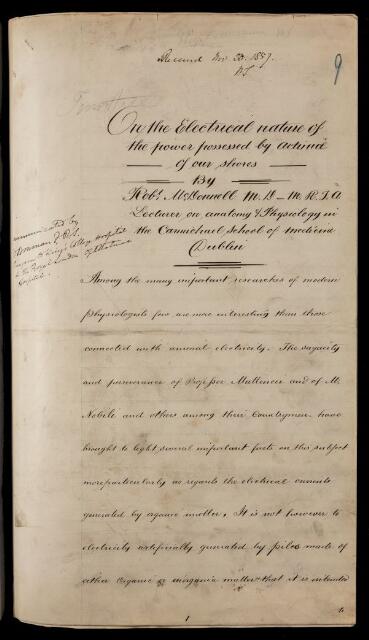 Received Nov. 23. 1857.
9
On the Electrical nature of
the power possessed by actiniæ
of our shores
By
Robt. McDonnell M.D. - M.R.I.A
Lecturer on anatomy & Physiology in
the Carmichael School of medicine
Dublin
Communicated by
Bowman F.R.S.
Surgeon to King's College Hospital
& the Royal London Ophthalmic
Hospital.
Among the many important researches of modern
physiologists few are more interesting than those
connected with animal electricity. The sagacity
and perseverance of Professr. Matteucci and of M.
Nobili and others among their Countrymen have
brought to light several important facts on this subject
more particularly as regards the electrical currents
generated by organic matter, It is not however to
electricity artificially generated by piles made of
either organic or inorganic matter that it is intended
to
1